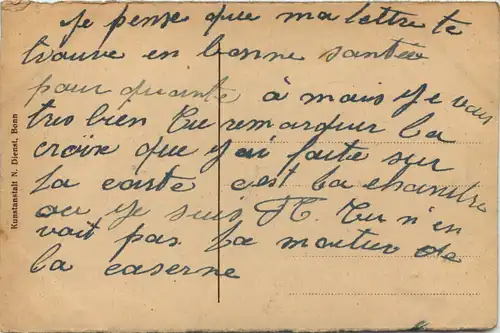 je pense que ma lettre te
trouve en bonne santée
pour quante à mais je vais
tres bien Tu remarquer la
croix que j'ai faite sur
la carte c'est la chambre
ou je suis Tu n'en
voit pas la moitier de
la caserne
Kunstanstalt N. Dienst, Bonn